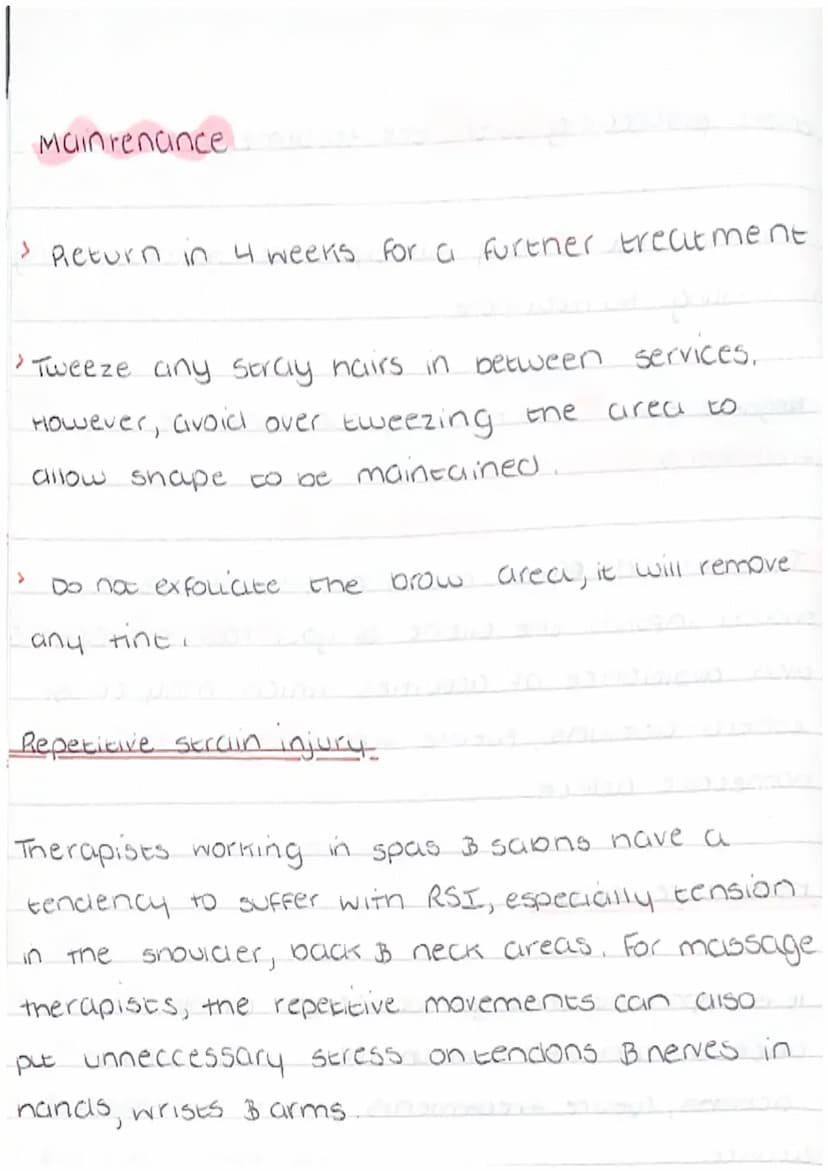 Maintenance
> Return in 4 weeks for a further treatment
> Tweeze any stray hairs in between services.
However, avoid over tweezing the area to
allow shape to be maintained.
> Do not exfoliate the brow area, it will remove
any tint.
Repetitive strain injury
Therapists working in spas & salons have a
tendency to suffer with RSI, especially tension
in the shoulder, back & neck areas. For massage
therapists, the repetitive movements can also
put unneccessary stress on tendons & nerves in
hands, wrists & arms.